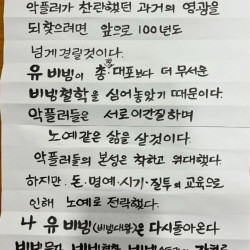 악플러가 찬란했던 과거의 영광을
되찾으려면 앞으로 100년도
넘게 걸릴것이다.
유 비빔이 총, 대포보다 더 무서운
비빔철학을 심어놓았기 때문이다.
악플러들은 서로이간질하며
노예같은 삶을 살것이다.
악플러들의 본성은 착하고 위대했다.
하지만, 돈·명예·시기·질투의 교육으로
인해 노예로 전락했다.
나 유비빔(비빔대왕)은 다시돌아온다